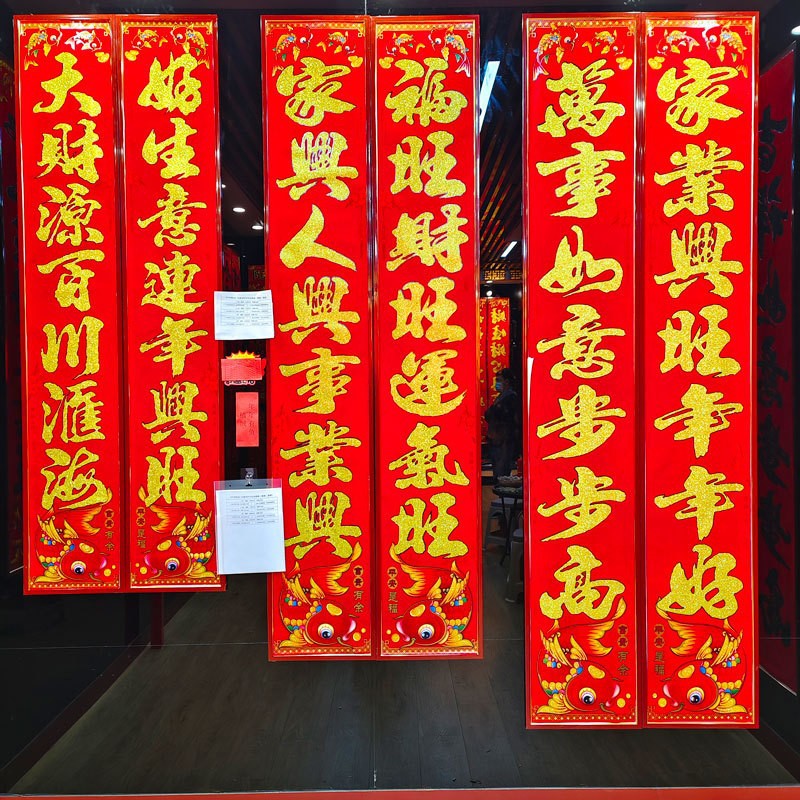 好生意連年興旺
大財源百川滙海
福旺財旺運氣旺
家興人興事業興
家業興旺年年好
萬事如意步步高
平安是福
富貴有余
平安是福
富貴有余
平安是福
富貴有余